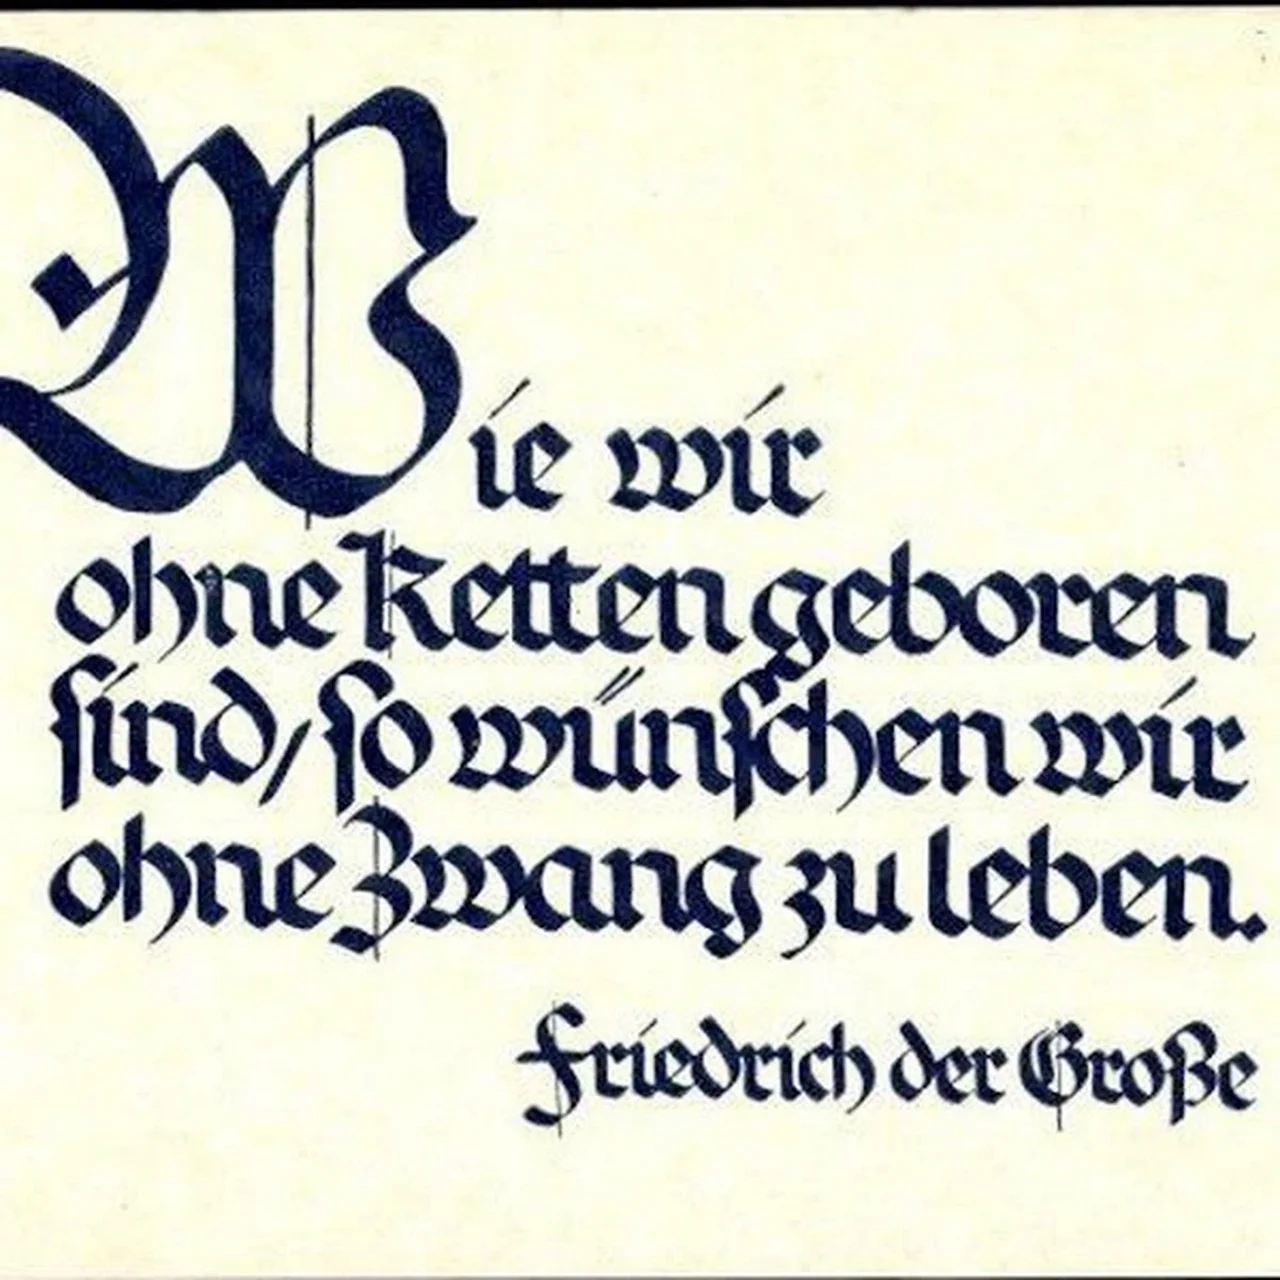 Wie wir
ohne Ketten geboren
sind, so wünschen wir
ohne Zwang zu leben.
Friedrich der Große